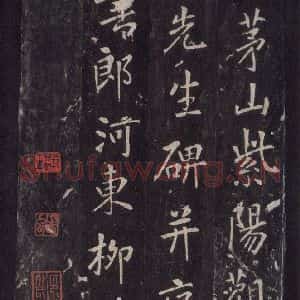 茅山紫陽觀
先生碑并序
書郎河東柳
ShufaWang.CN